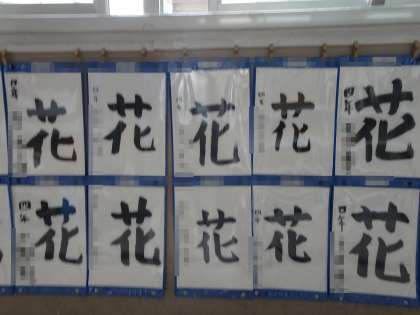 花
四年
花
四年
花
四年
花
四年
花
四年
花
四年
花
花
花
四年
花
四年